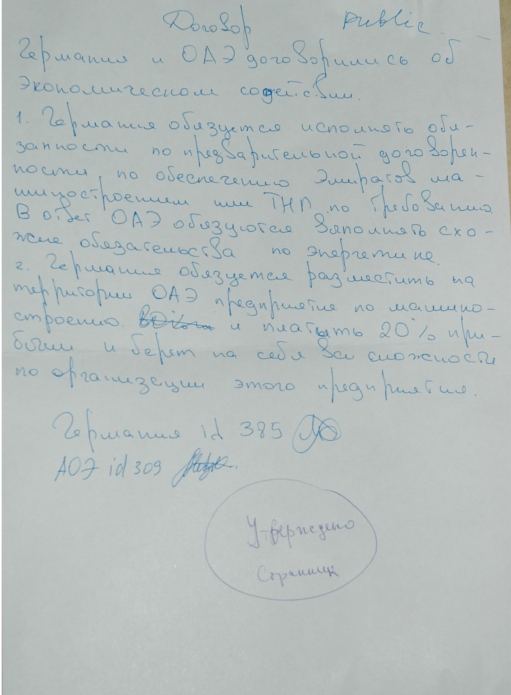 Договор Public
Германия и ОАЭ договорились об
экономическом содействии.
1. Германия обязуется исполнять обя-
занности по предварительной договорен-
ности по обеспечению Эмиратов ма-
шиностроением или ТНП по требованию
В ответ ОАЭ обязуются выполнять схо-
жие обязательства по энергетике.
2. Германия обязуется разместить на
территории ОАЭ предприятие по машино-
строению и платить 20% при-
были и берет на себя все сложности
по организации этого предприятия.
Германия id 385
АОЭ id 309
Утверждено
Странник